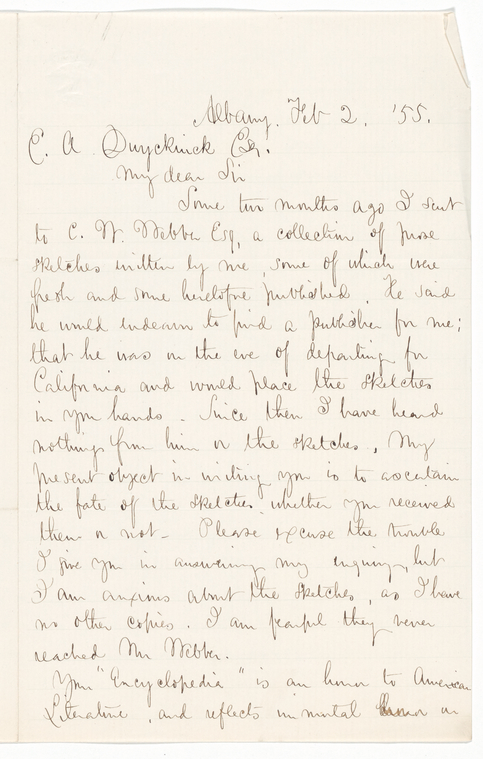 Albany. Feb 2. '55.
E. A Duyckinck Esq.
My dear Sir
Some two months ago I sent
to C. W. Webber Esq, a collection of prose
sketches written by me, some of which were
fresh and some heretofore published. He said
he would endeavor to find a publisher for me;
that he was on the eve of departing for
California and would place the sketches
in your hands. Since then I have heard
nothing from him or the sketches, My
present object in writing you is to ascertain
the fate of the sketches whether you received
them or not. Please excuse the trouble
I give you in answering my inquiry, but
I am anxious about the sketches, as I have
no other copies. I am fearful they never
reached Mr Webber.
Your "Encyclopedia" is an honor to American
Literature, and reflects immortal honor on